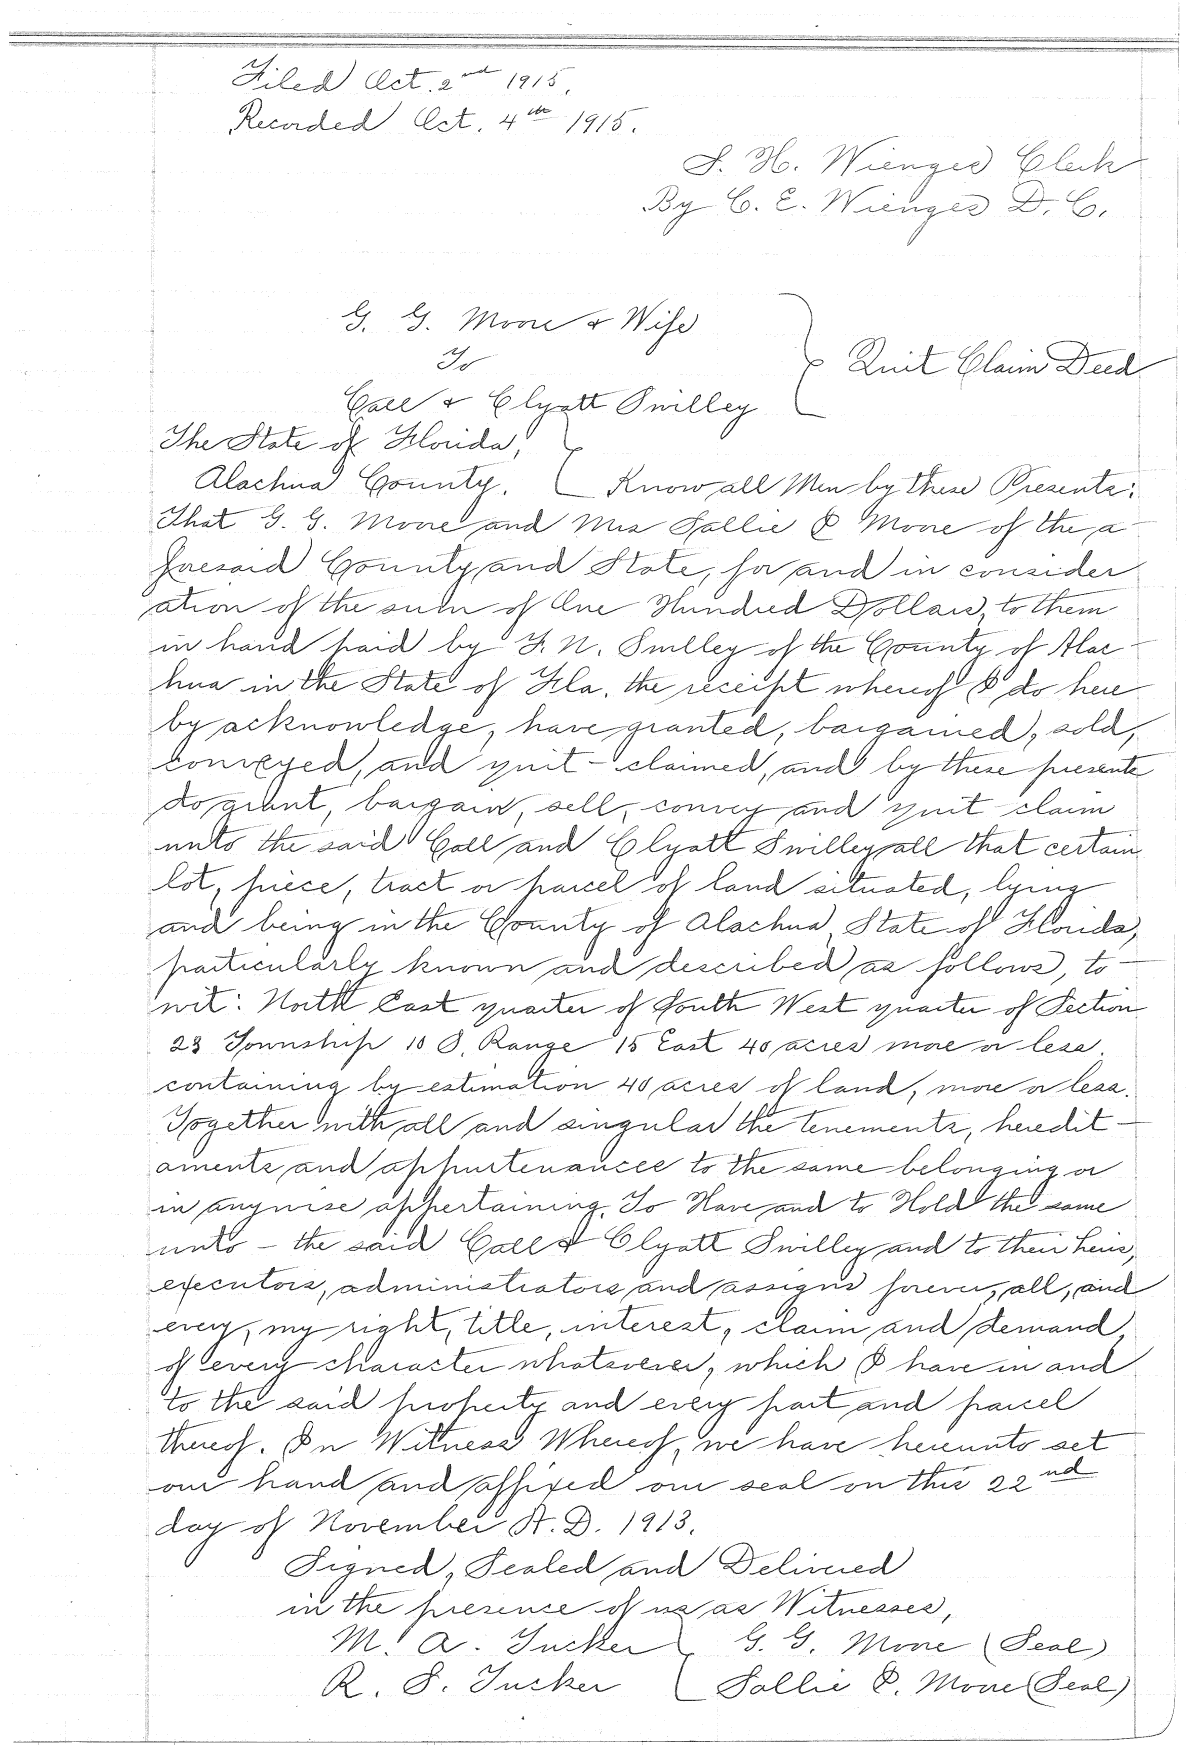 Filed Oct. 2nd 1915.
Recorded Oct. 4th 1915.
S. H. Wienges Clerk
By C. E. Wienges D. C.
G. G. Moore & Wife
To
Quit Claim Deed
Call & Clyatt Swilley
The State of Florida,
Alachua County. Know all Men by these Presents:
That G. G. Moore and Mrs Sallie P Moore of the a
foresaid County and State, for and in consider
ation of the sum of One Hundred Dollars, to them
in hand paid by F. N. Smilley of the County of Alac-
hua in the State of Fla. the receipt whereof I do here
by acknowledge, have granted, bargained, sold,
conveyed, and quit-claimed, and by these presents
do grant, bargain, sell, convey and quit claim
unto the said Call and Clyatt Swilley all that certain
lot, piece, tract or parcel of land situated, lying
and being in the County of Alachua, State of Florida,
particularly known and described as follows, to-
wit: North East quarter of South West quarter of Section
23 Township 10 S, Range 15 East 40 acres more or less.
containing by estimation 40 acres of land, more or less.
Together with all and singular the tenements, heredit-
aments and appurtenances to the same belonging or
in anywise appertaining. To Have and to Hold the same
unto - the said Call & Clyatt Swilley and to their heirs,
executors, administrators and assigns forever, all, and
every, my right, title, interest, claim and demand,
of every character whatsoever, which I have in and
to the said property and every part and parcel
thereof. In Witness Whereof, we have hereunto set
our hand and affixed our seal on this 22nd
day of November A. D. 1913.
Signed, Sealed and Delivered
in the presence of us as Witnesses,
M. A. Tucker G. G. Moore (Seal)
R. S. Tucker Sallie P. Moore (Seal)